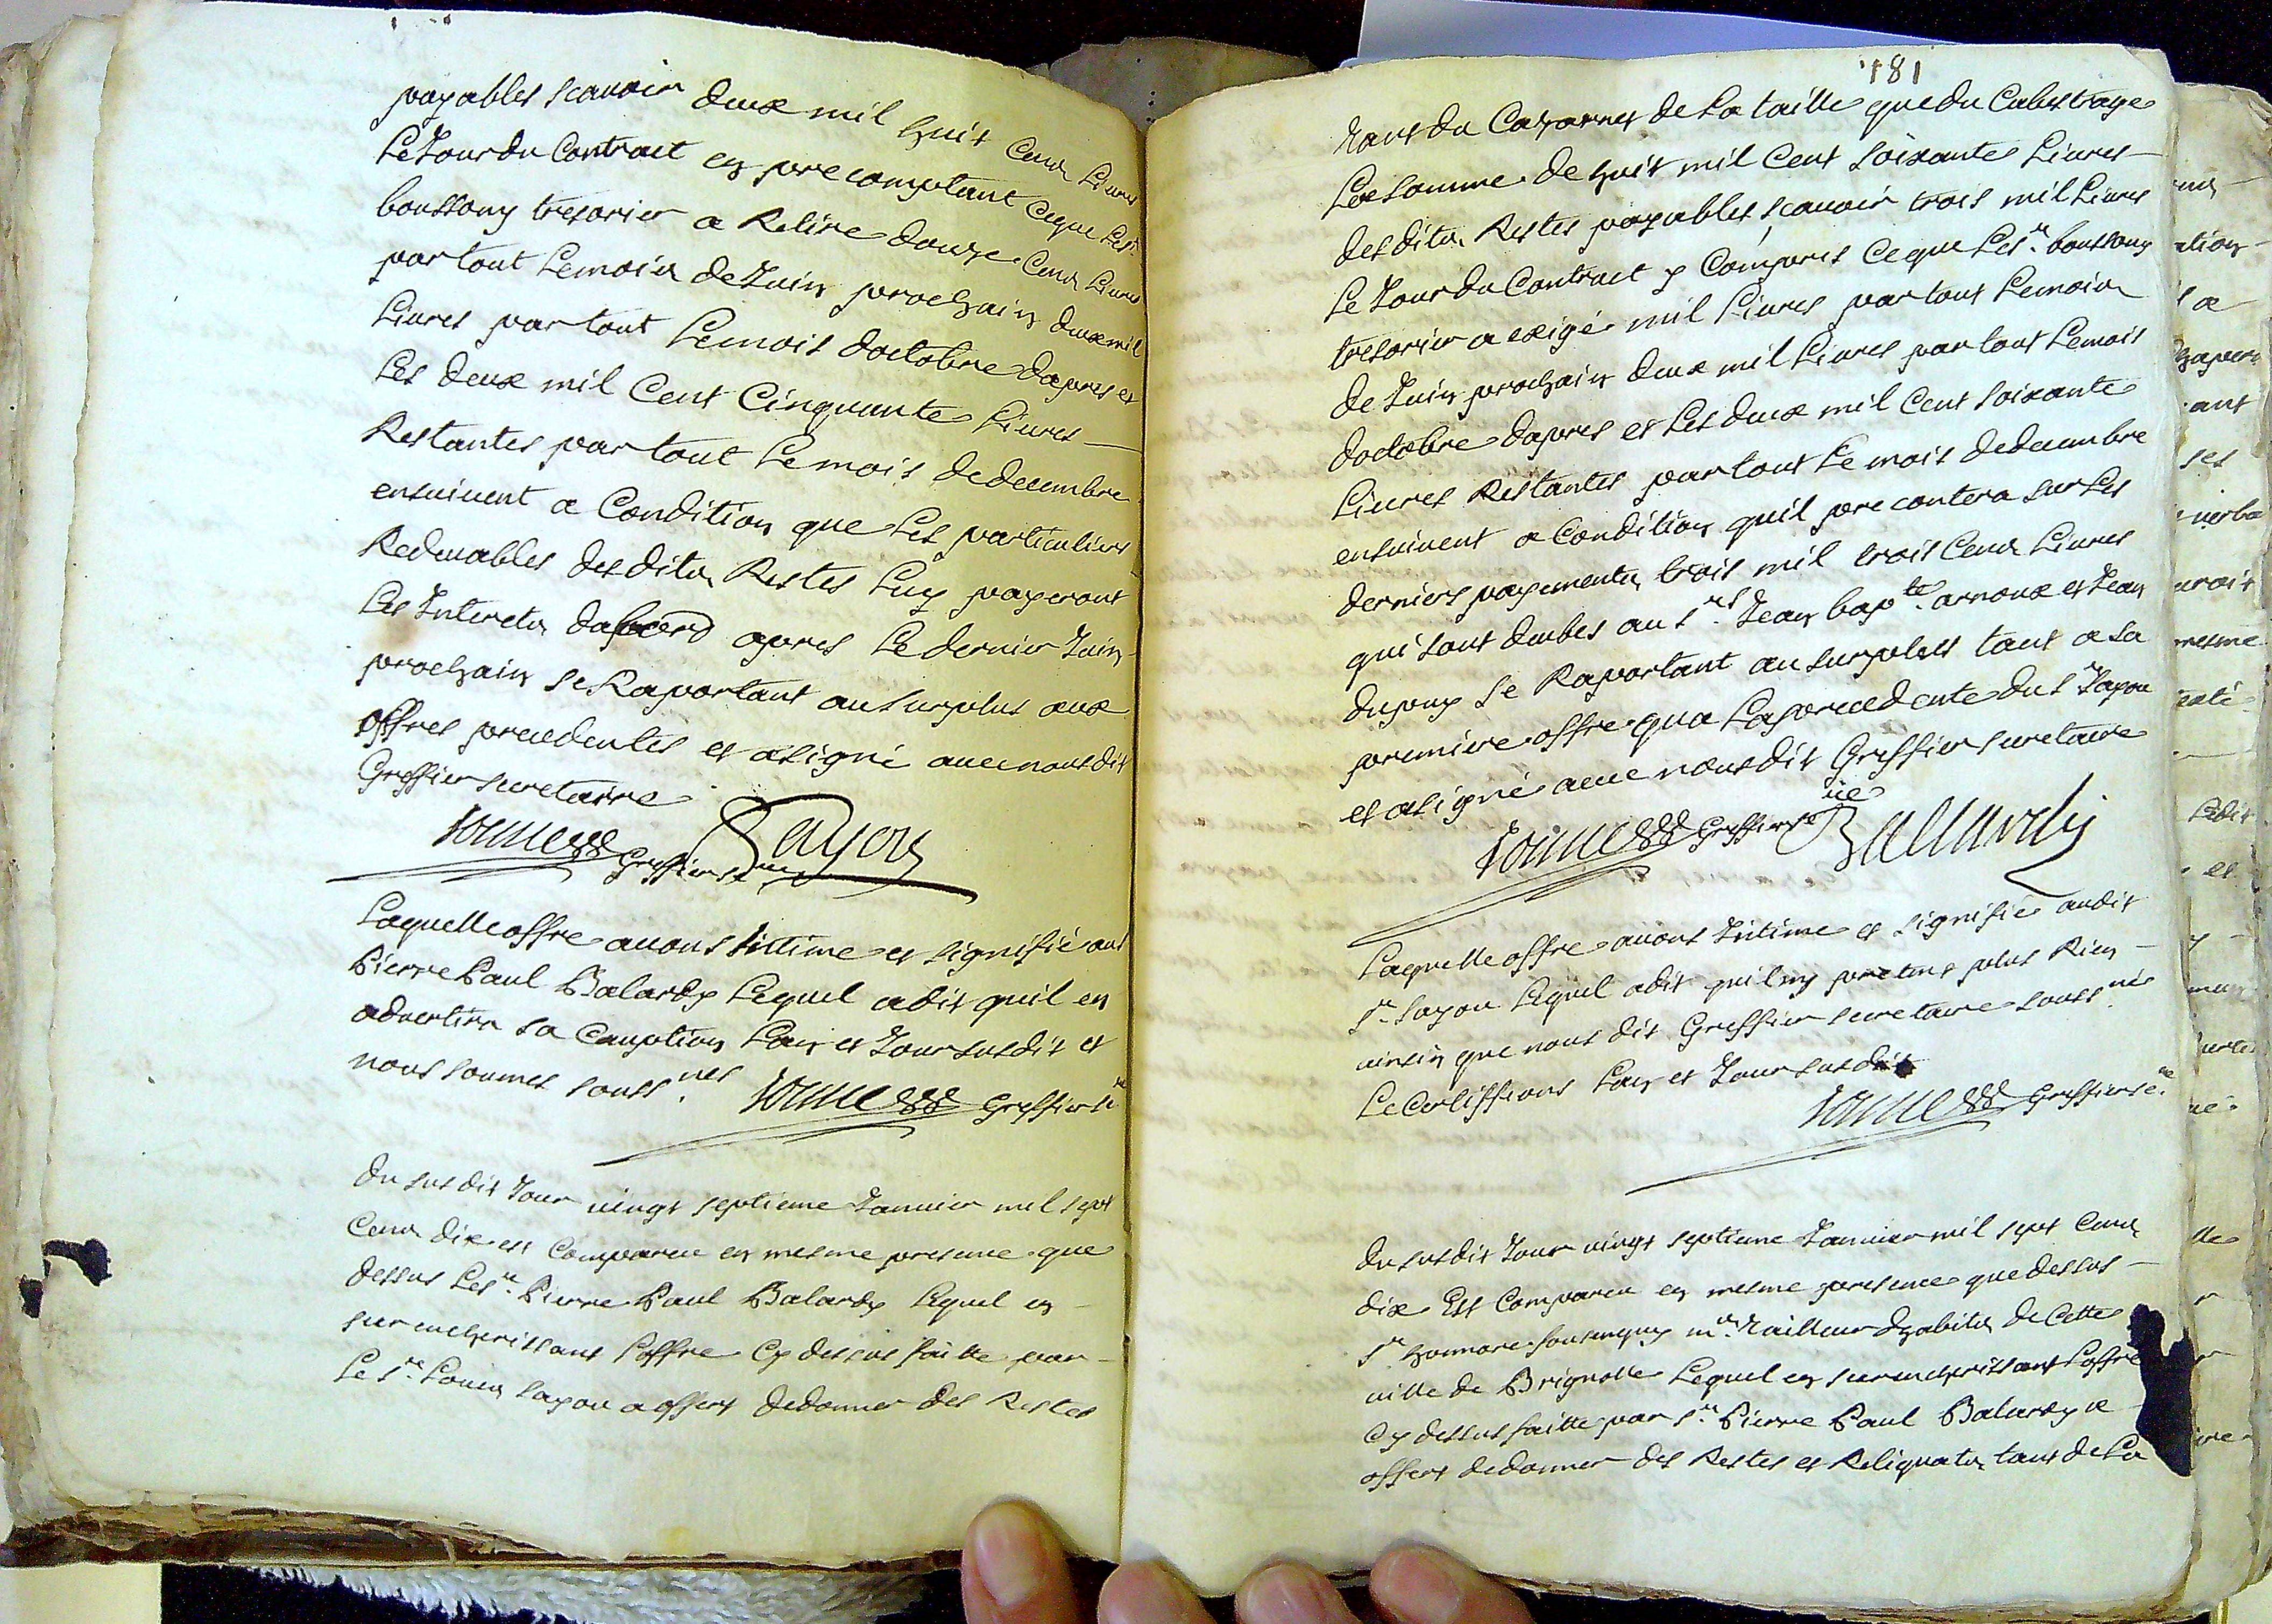 payables scavoir deux mil huit cens Livres
Le Jour du Contract en precomptant ce que Le sr.
boussony tresorier a Retiré douze Cens Livres
par tout Le mois de Juin prochain deux mil
Livres par tout Le mois doctobre dapres et
Les deux mil Cent Cinquante Livres
Restantes par tout Le mois de decembre
ensuivent a Condition que Les particuliers
Redevables des dits Restes Luy payeront
Les Interets dabord apres Le dernier Juin
prochain se Raportant au surplus aux
offres precedentes et a signé avec nous dit
Greffier secretaire
Greffier se.re Sayou
Laquelle offre avons Intime et signifié au s
Pierre Paul Balardy Lequel a dit quil en
advertira sa Caution Lan et Jour susdit et
nous sommes souss.nes Greffier se.re
du susdit Jour vingt septieme Janvier mil sept
Cens dix est Comparu en mesme presence que
dessus Le sr. Pierre Paul Balardy Lequel en
surencherissant Loffre Cy dessus faitte par
Le sr. Louis Sayou a offert de donner des Restes
181
tant du Cazernet de La taille que du Cabestrage
La somme de huit mil Cent soixante Livres
des dits Restes payables scavoir trois mil Livres
Le Jour du Contract y Compris ce que Le sr. boussony
tresorier a exigé mil Livres par tout Le mois
de Juin prochain deux mil Livres par tout Le mois
doctobre dapres et Les deux mil Cent soixante
Livres Restantes par tout Le mois de decembre
ensuivent a Condition quil precontera sur Les
derniers payements trois mil trois Cens Livres
qui sont deubes au srs. Jean bapte. arnoux et Jean
dupuy se Raportant au surplus tant a sa
premiere offre qua La precedente du sr Sayou
et a signé avec nous dit Greffier secretaire
Greffier se.re Ballardy
Laquelle offre avons Intime et signifié audit
sr. Sayou Lequel a dit quil ny pretens plus Rien
ainsin que nous dit Greffier secretaire souss.nés
Le Certiffions Lan et Jour susdit
Greffier se.re
du susdit Jour vingt septieme Janvier mil sept Cens
dix Est Comparu en mesme presence que dessus
sr. honnore mr. tailleur dhabits de Cette
ville de Brignolle Lequel en surencherissant Loffre
Cy dessus faitte par sr. Pierre Paul Balardy a
offert de donner des Restes et Reliquats tant de La